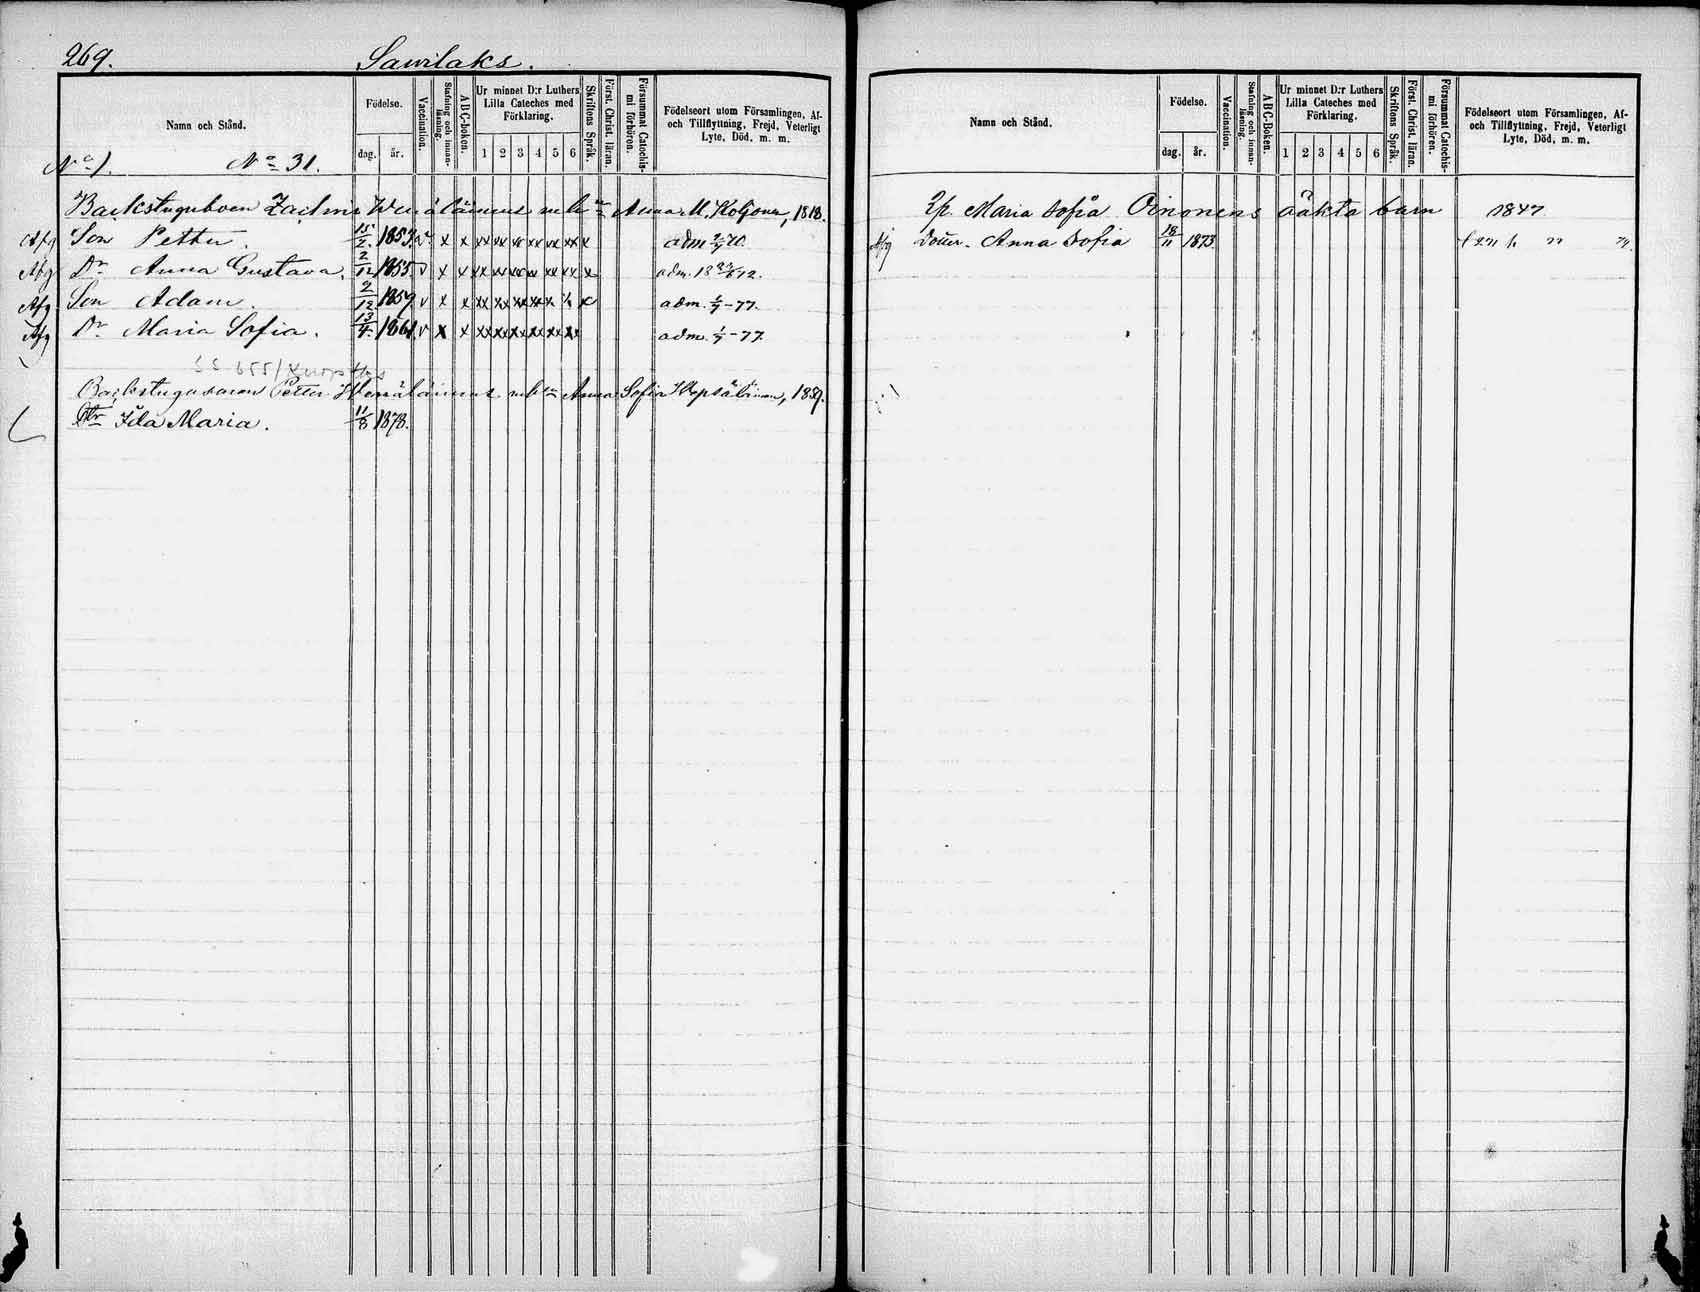 269. Sawilaks.
Namn och Stånd.
Födelse.
dag. år.
Vaccination.
Stafning och innan-läsning.
ABC-boken.
Ur minnet D:r Luthers Lilla Cateches med Förklaring.
1 2 3 4 5 6
Skriftens Språk.
Först. Christ. läran.
Försummat Catechis-mi förhören.
Födelseort utom Församlingen, Af- och Tillflyttning, Frejd, Veterligt Lyte, Död, m. m.
No 1. No 31.
Backstuguboen Zachris Wenäläinens mb Anna M. Koljonen, 1818.
Afg Son Petter. 15/2. 1853. v x x xx xx xx xx xx xx x adm
Afg Dr Anna Gustava. 2/12 1855. v x x xx xx xx xx xx xx x adm. 18 72.
Afg Son Adam. 2/12 1859. v x x xx xx xx xx x x adm. -77.
Afg Dr Maria Sofia. 13/4. 1861. v x x xx xx xx xx xx xx adm. 1/7-77.
SS 655/
Backstugusonen Petter Wenäläinens mb Anna Sofia 1859.
Dtr Ida Maria. 11/8 1878.
Namn och Stånd.
Födelse.
dag. år.
Vaccination.
Stafning och innan-läsning.
ABC-Boken.
Ur minnet D:r Luthers Lilla Cateches med Förklaring.
1 2 3 4 5 6
Skriftens Språk.
Först. Christ. läran.
Försummat Catechis-mi förhören.
Födelseort utom Församlingen, Af- och Tillflyttning, Frejd, Veterligt Lyte, Död, m. m.
Maria Sofia Oinonens oäkta barn 1847
Afg Dotter. Anna Sofia 18/11 1873